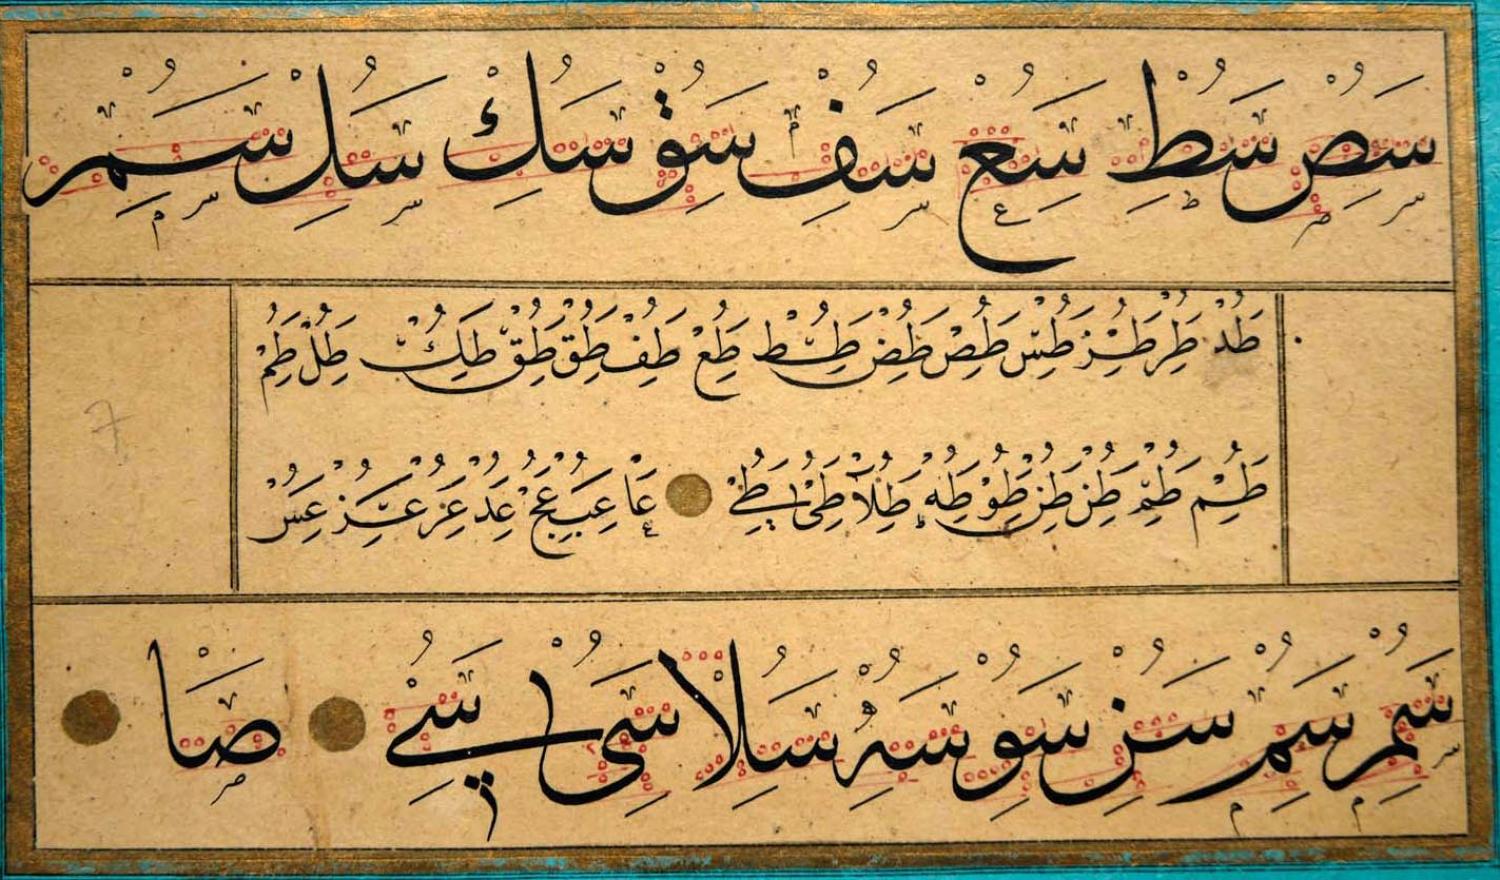 سص سط سع سف سق سك سل سم
طد طر طز طس طص طض طط طع طف طق طق طك طل طم
طم طم طن طن طو طه طلا طى طے عا عب عج عد عر عز عس
سم سم سن سو سه سلا سى سے صا